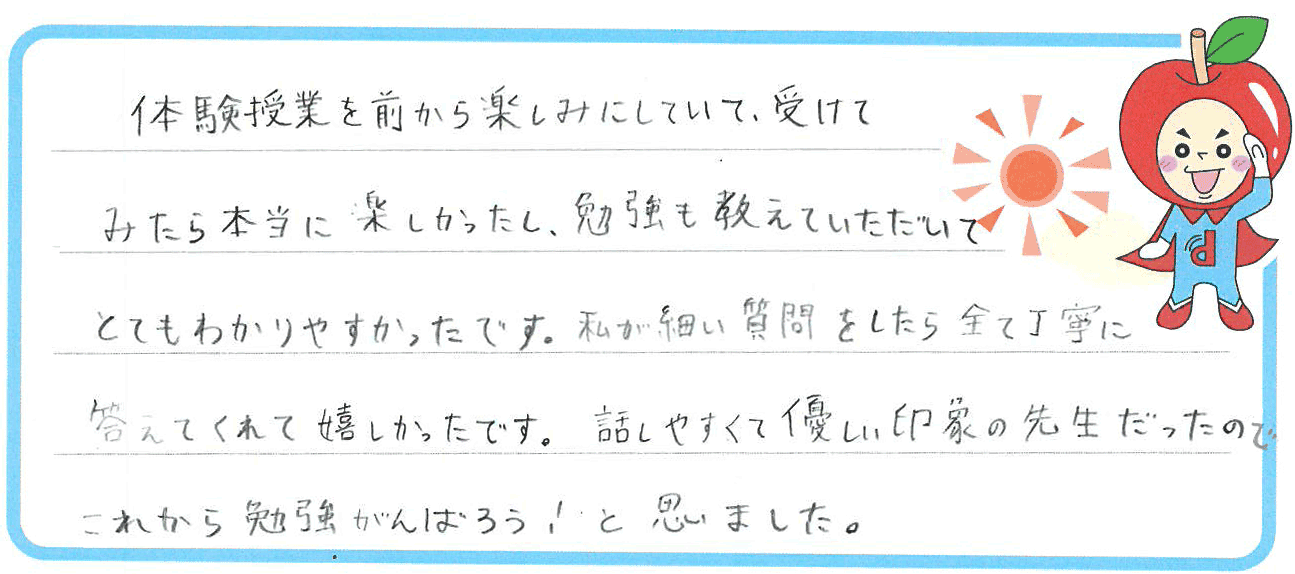 体験授業を前から楽しみにしていて、受けて
みたら本当に楽しかったし、勉強も教えていただいて
とてもわかりやすかったです。私が細い質問をしたら全て丁寧に
答えてくれて嬉しかったです。話しやすくて優しい印象の先生だったので
これから勉強がんばろう!と思いました。
d